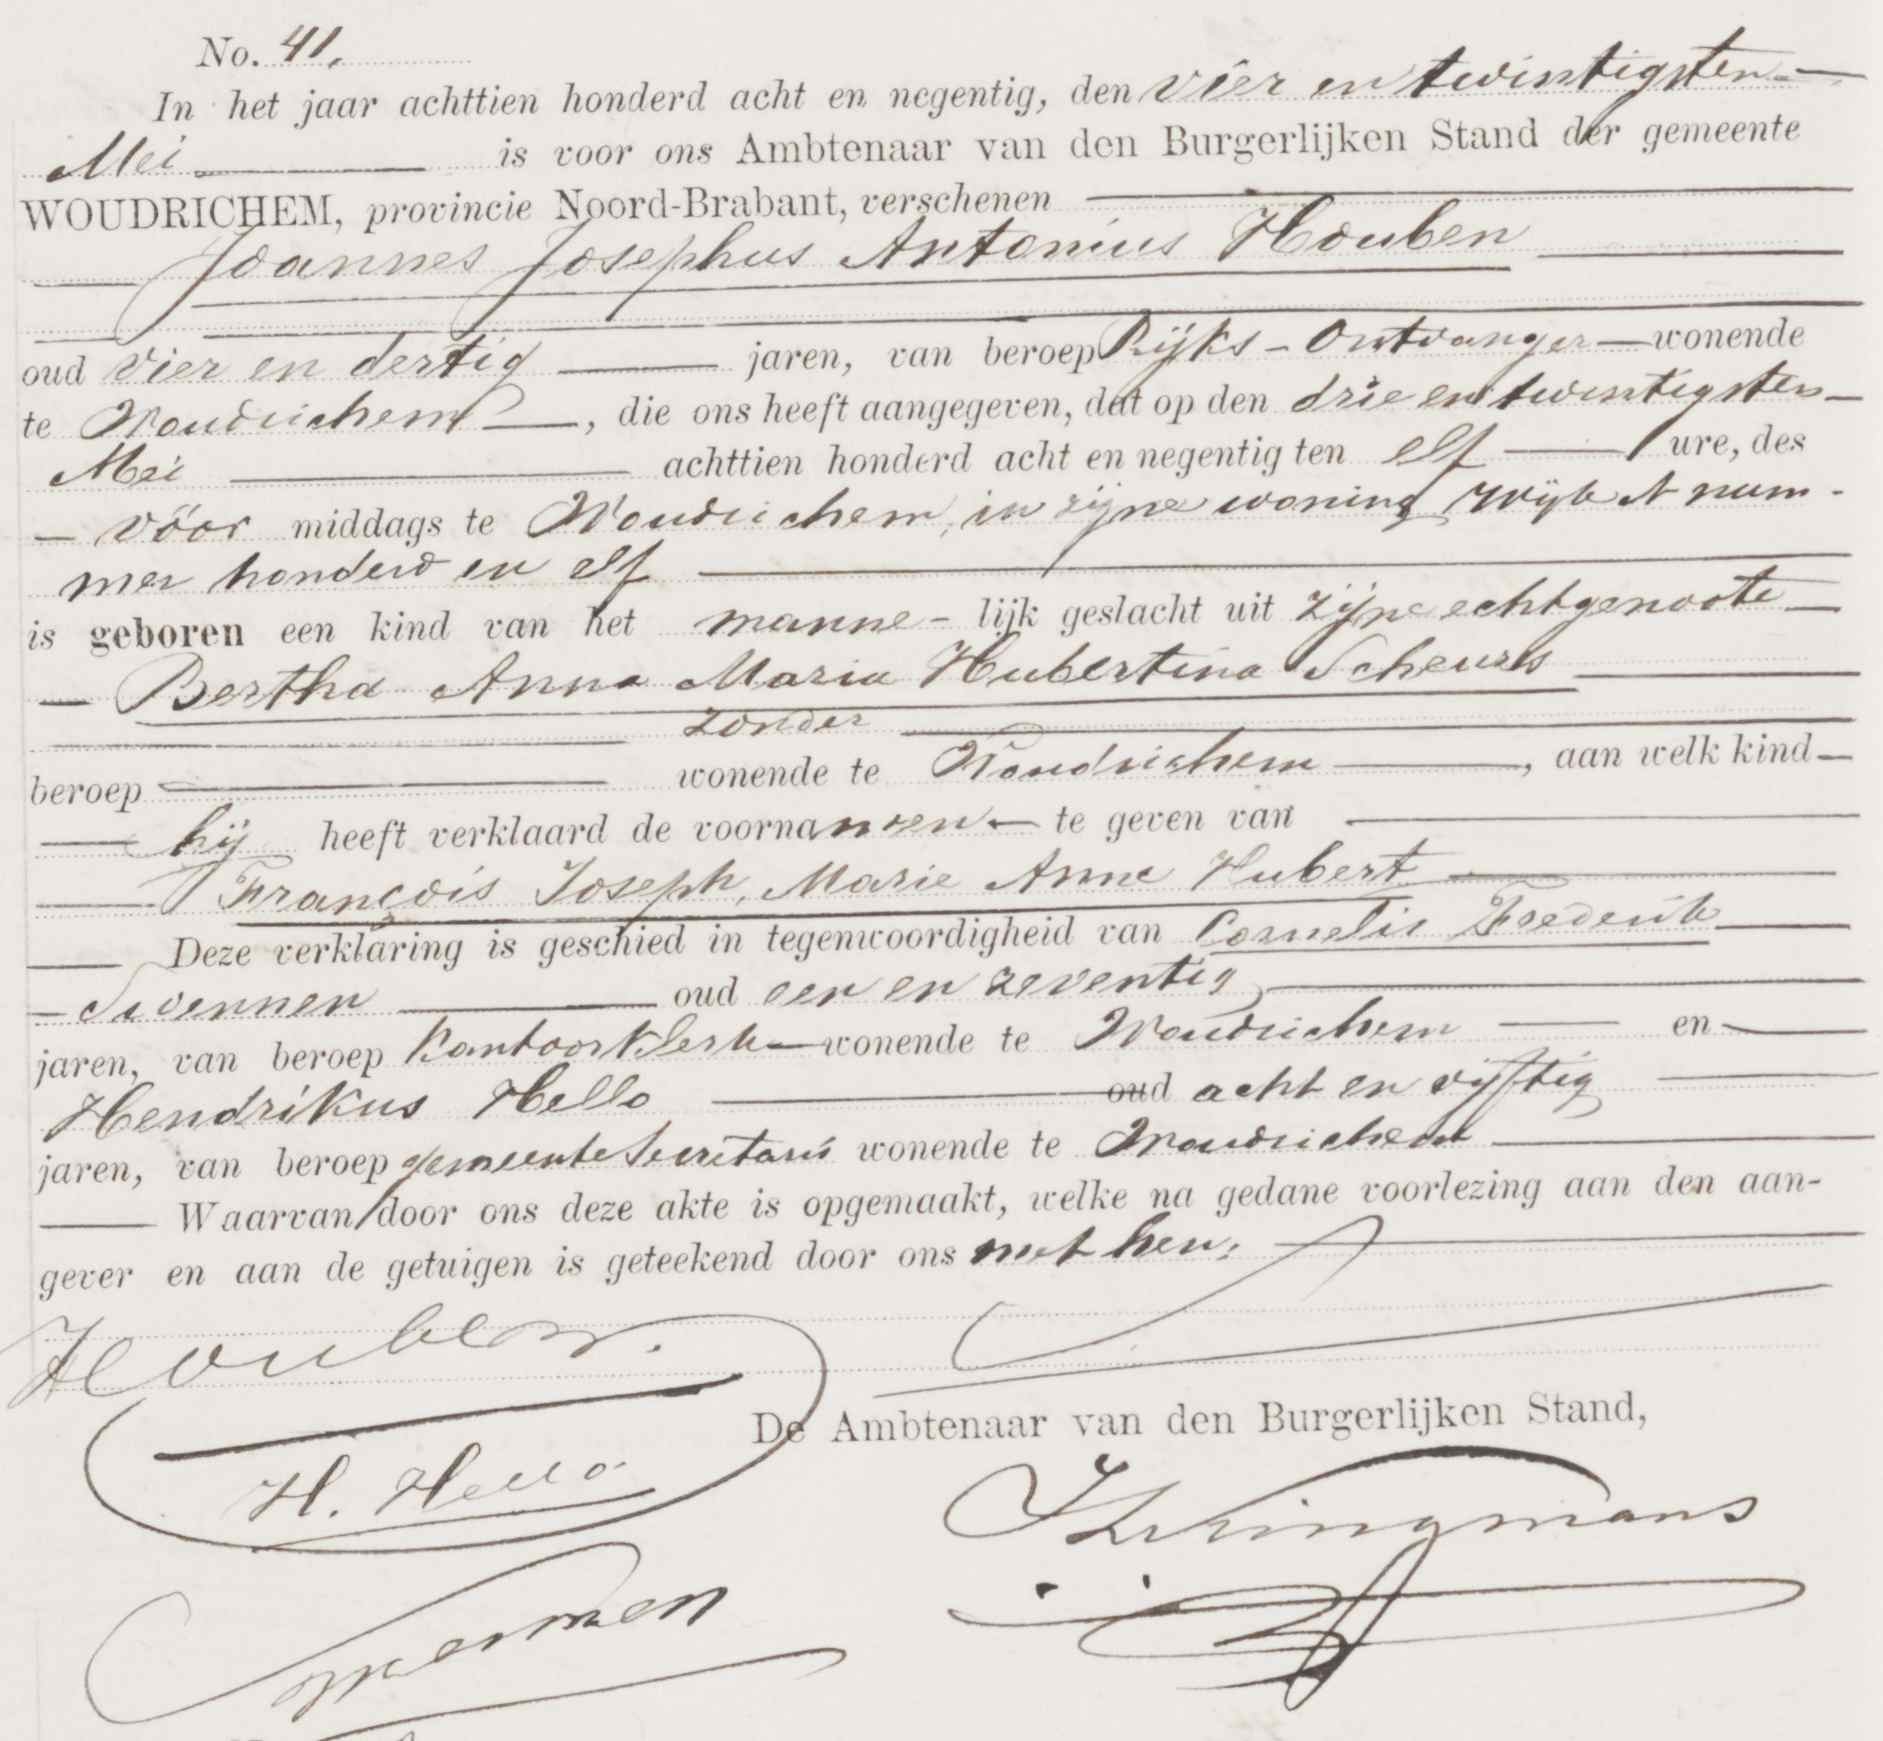 No. 41.
In het jaar achttien honderd acht en negentig, den vier en twintigsten
Mei is voor ons Ambtenaar van den Burgerlijken Stand der gemeente
WOUDRICHEM, provincie Noord-Brabant, verschenen
Joannes Josephus Antonius Houben
oud vier en dertig jaren, van beroep Rijks-Ontvanger wonende
te Woudrichem, die ons heeft aangegeven, dat op den drie en twintigsten
Mei achttien honderd acht en negentig ten elf ure, des
vóor middags te Woudrichem, in zijne woning wijk A num-
mer honderd en elf
is geboren een kind van het manne-lijk geslacht uit zijne echtgenoote
Bertha Anna Maria Hubertina Scheurs
zonder
beroep wonende te Woudrichem, aan welk kind
hij heeft verklaard de voornamen te geven van
François Joseph, Marie Anne Hubert
Deze verklaring is geschied in tegenwoordigheid van Cornelis Frederik
Swennen oud een en zeventig
jaren, van beroep Kantoorklerk wonende te Woudrichem en
Hendrikus Hello oud acht en vijftig
jaren, van beroep gemeente Secretaris wonende te Woudrichem
Waarvan door ons deze akte is opgemaakt, welke na gedane voorlezing aan den aan-
gever en aan de getuigen is geteekend door ons met hen.
Houben.
De Ambtenaar van den Burgerlijken Stand,
H. Hello